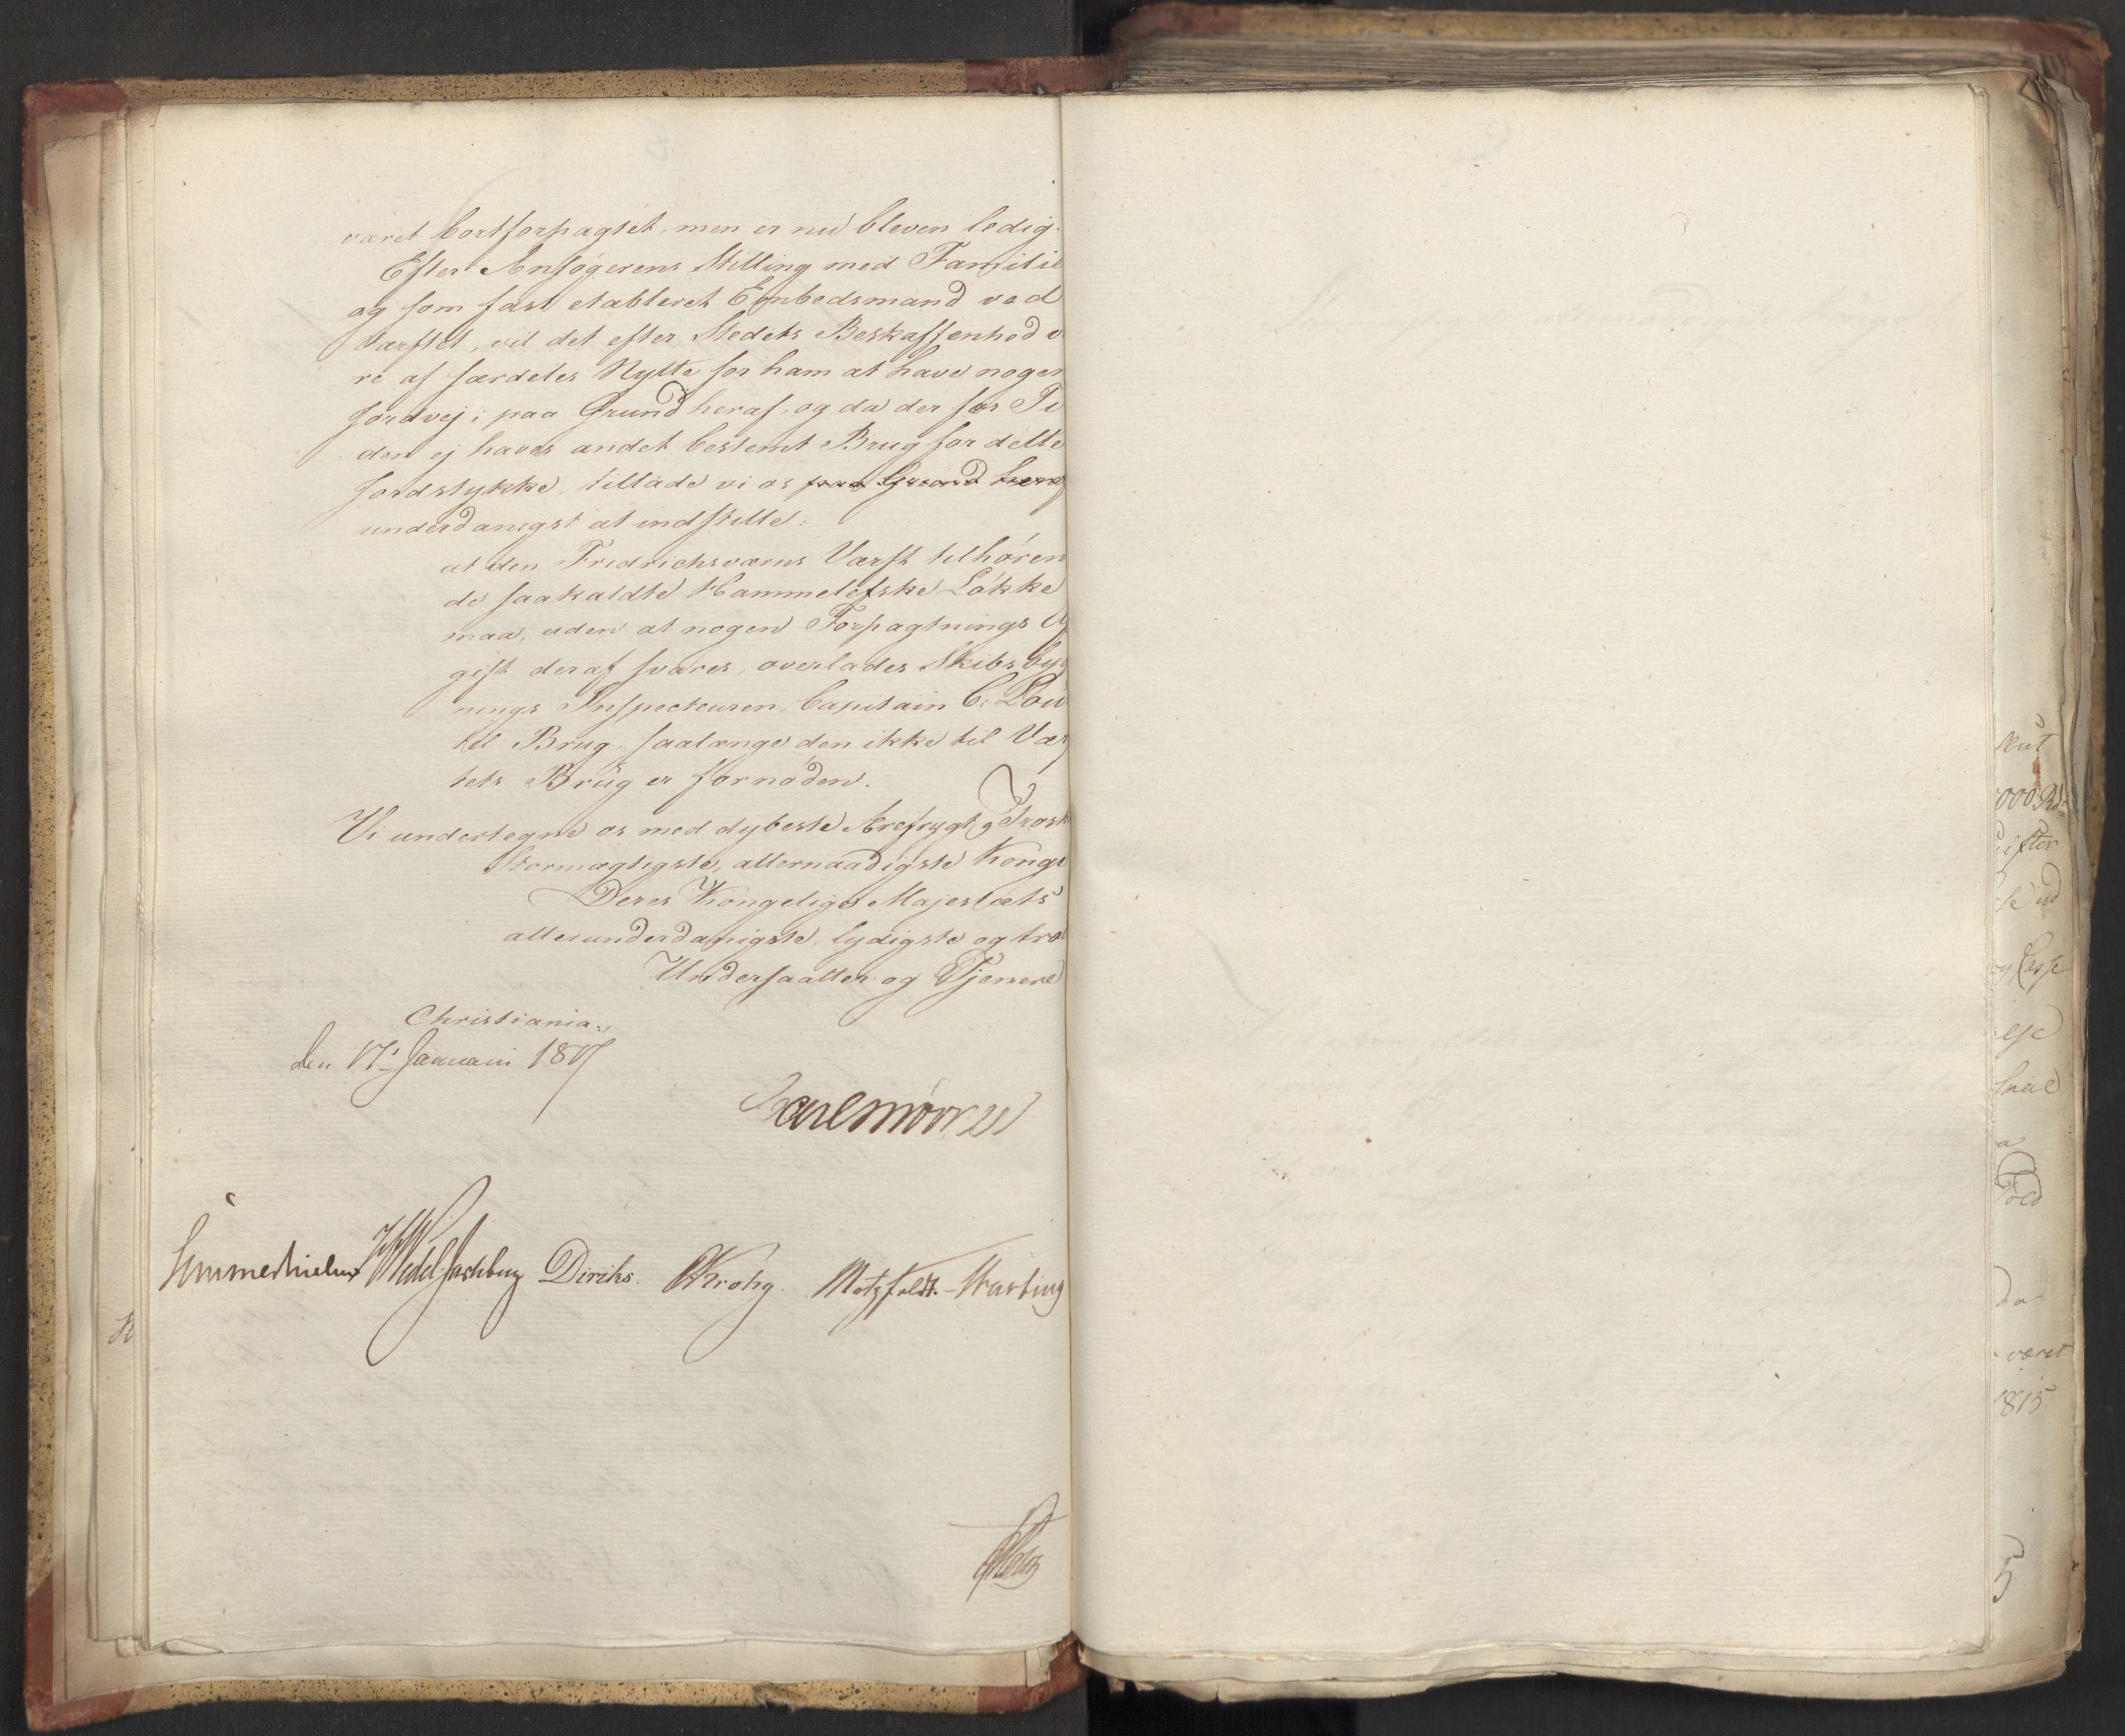 været bortforpagtet, men er nu bleven ledig.
Efter Ansøgerens Stilling med Familie
og som fast etableret Embedsmand ved
Værftet, vil det efter Stedets Beskaffenhed v
re af særdeles Nytte for ham at have nogen
Jordvej; paa Grund heraf, og da der for Ti
den ej haves andet bestemt Brug for dette
Jordstykke, tillade vi os paa Grund heraf
underdanigst at indstille:
at den Fredrichsværns Værft tilhøren
de saakaldte Hammelefske Løkke
maa, uden at nogen Forpagtnings Af
gift deraf svares, overlades Skibsbyg
nings Inspecteuren, Capitain C. Pou
til Brug, saalænge den ikke til Værf
tets Brug er fornøden.
Vi undertegne os med dybeste Ærefrygt og Trosk
Stormægtigste, allernaadigste Konge
Deres Kongelige Majestæts
allerunderdanigste, lydigste og tro
Undersaatter og Tjenere
Christiania,
den 17' Januari 1817
Carl Mörner
Sommerhielm Wedel Jarlsberg Diriks. Krohg. Motzfeldt. Hartwig
nut
000 Rd
ifter
se ud
og Casse
else
skal
a
Told
da
været
1815
5